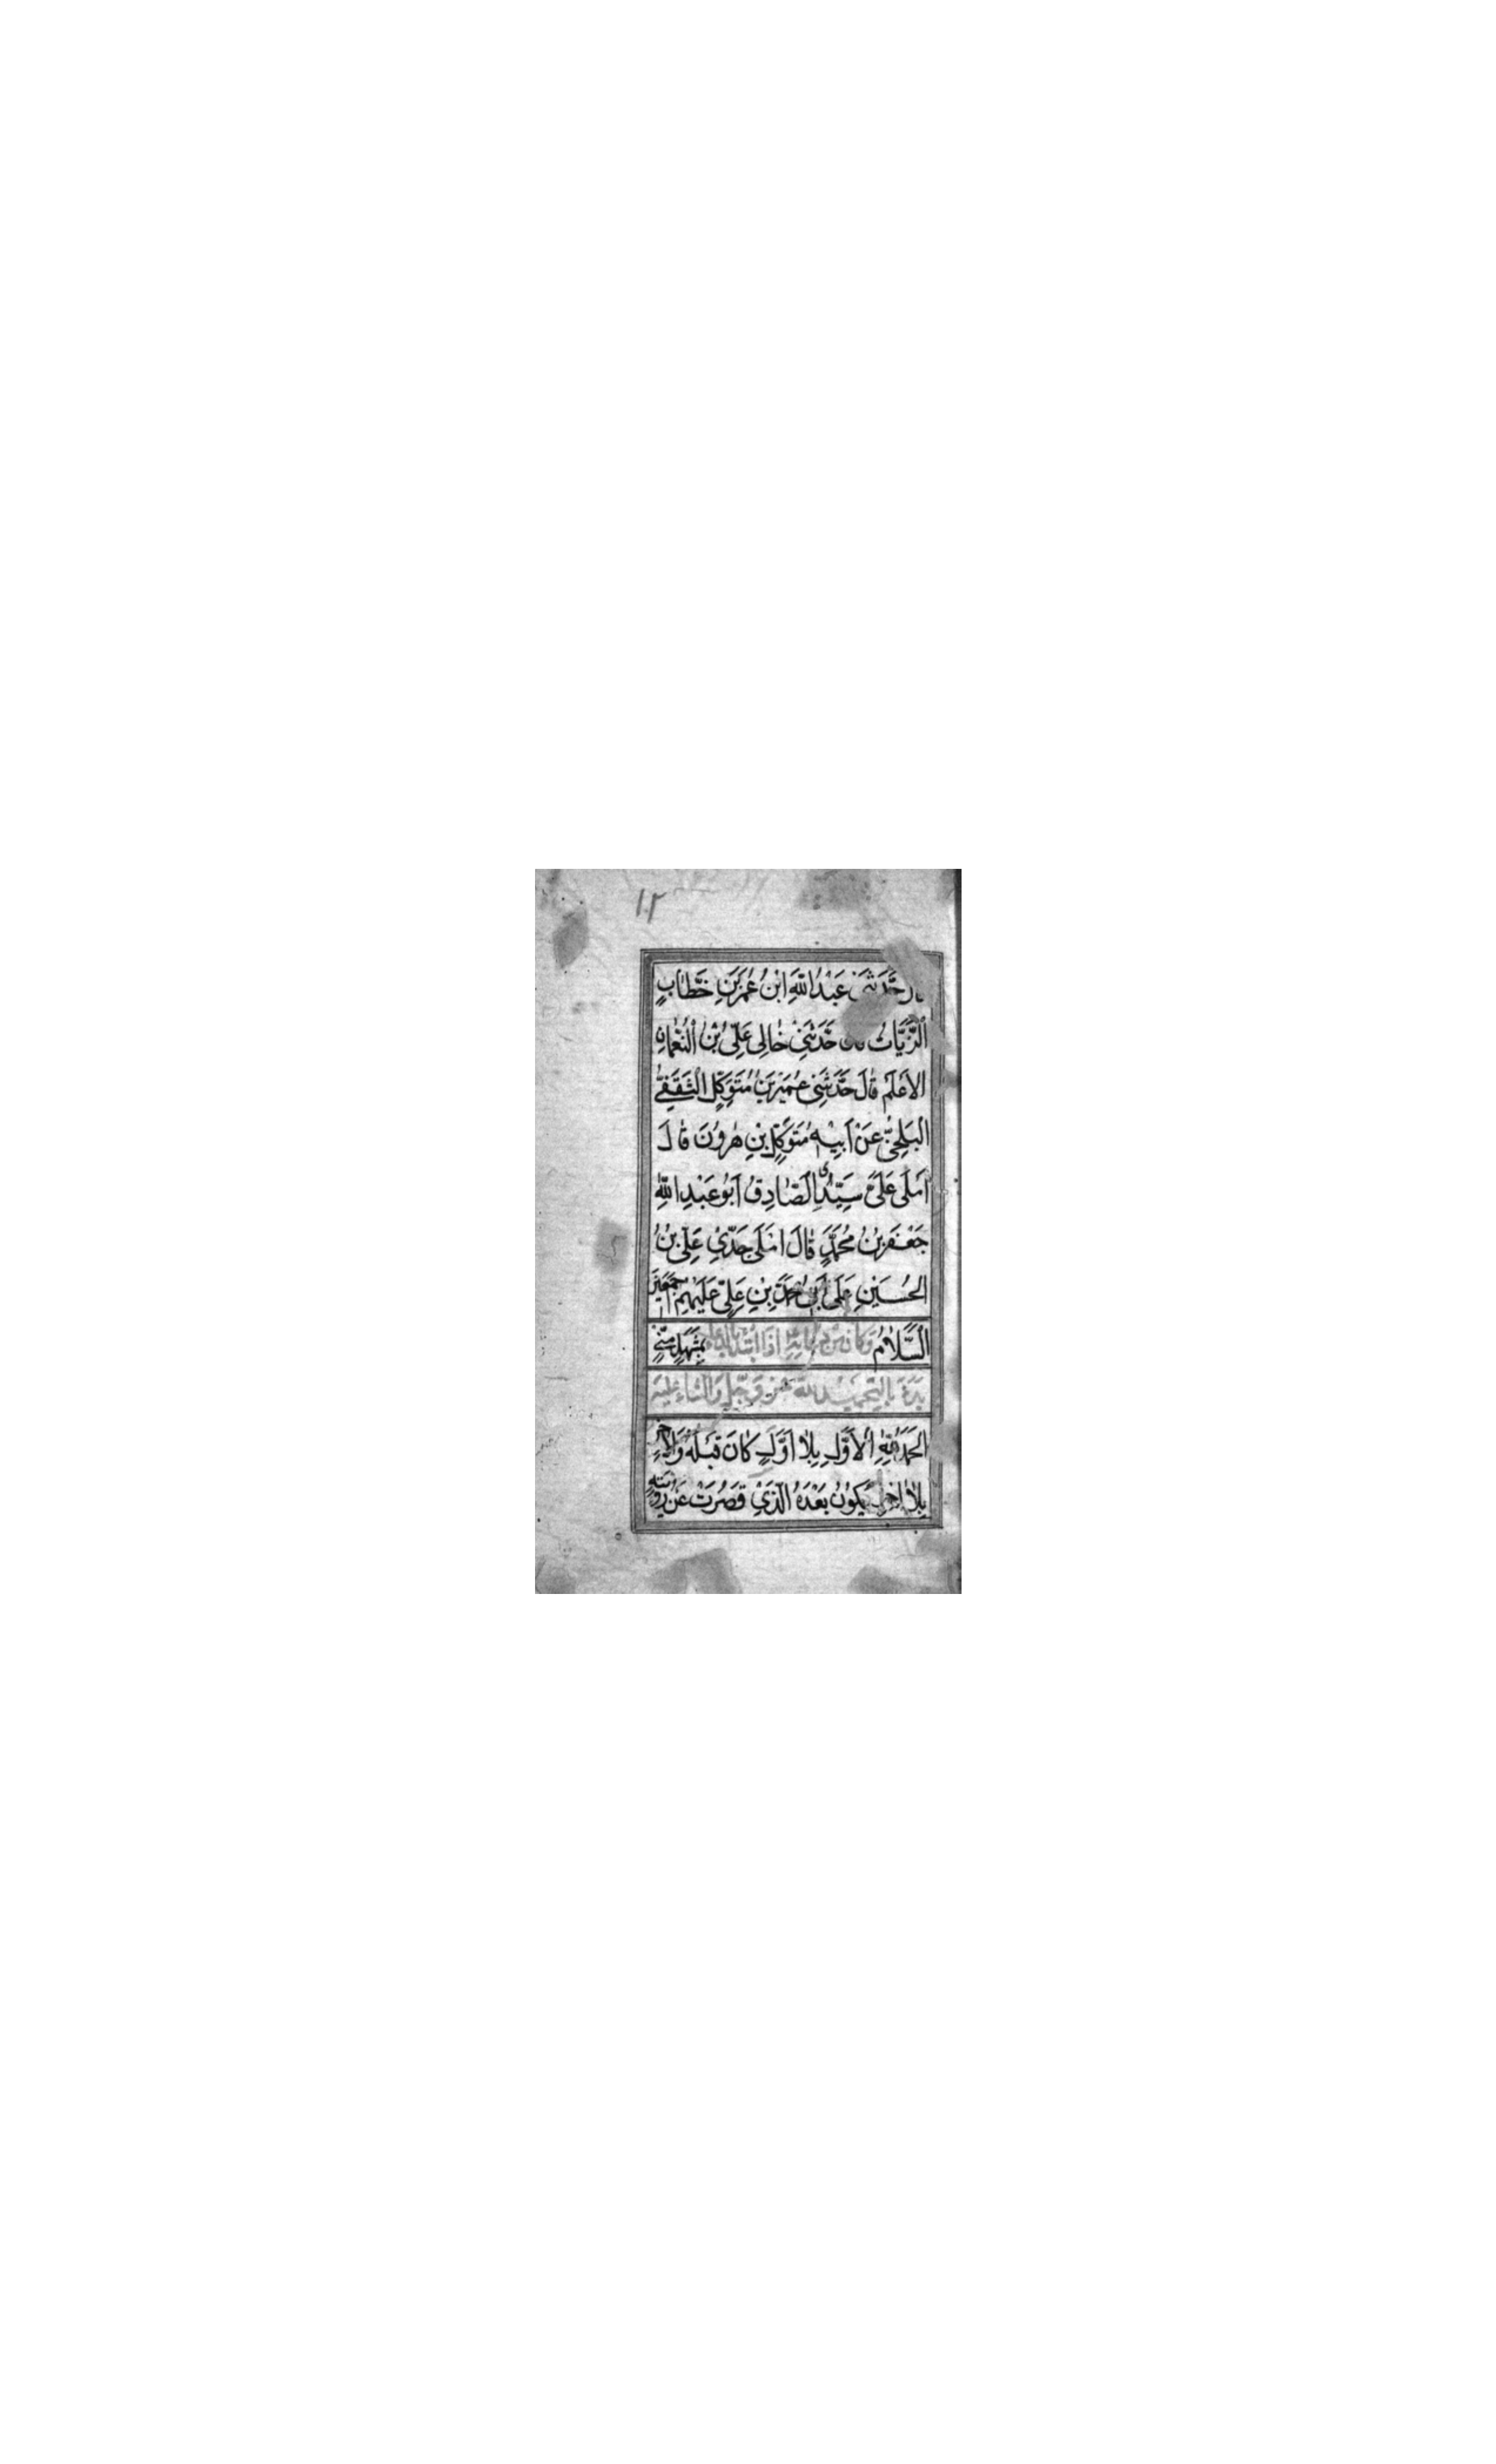 ١٢
قال حَدَّثَنِي عَبْدُ اللّٰهِ ابْنُ عُمَرَ بْنِ خَطَّابٍ
الزَّيَّاتُ قال حَدَّثَنِي خٰالِي عَلِيُّ بْنُ النُّعْمٰانِ
الاَعْلَمِ قٰالَ حَدَّثَنِي عُمَيْرُ بْنُ مُتَوَكِّلٍ الثَّقَفِيُّ
الْبَلْخِيُّ عَنْ اَبِيْهِ مُتَوَكِّلِ بْنِ هٰرُونَ قٰالَ
اَمْلَى عَلَىَّ سَيِّدُى الصّٰادِقُ اَبُو عَبْدِ اللّٰهِ
جَعْفَرُ بْنُ مُحَمَّدٍ قٰالَ اَمْلَى جَدِّيْ عَلِيُّ بْنُ
الْحُسَيْنِ عَلَى اَبِي مُحَمَّدِ بْنِ عَلِيٍّ عَلَيْهِمْ اجمَعِينَ
السَّلاٰمُ وَكٰانَ مِنْ دُعٰائِهِ اِذَا ابْتَدَأ بِالدُّعٰاءِ
بَدَءَ بِالتَّحْمِيْدِ للّٰهِ عَزَّ وَجَلَّ وَالثَّنٰاءِ عَلَيْهِ
الْحَمْدُ لِلّٰهِ الْاَوَّلِ بِلاٰ اَوَّلٍ كٰانَ قَبْلَهُ وَالاٰخِرِ
بِلاٰ اٰخِرٍ يَكُوْنُ بَعْدَهُ الَّذِيْ قَصُرَتْ عَنْ رُؤْيَتِهِ